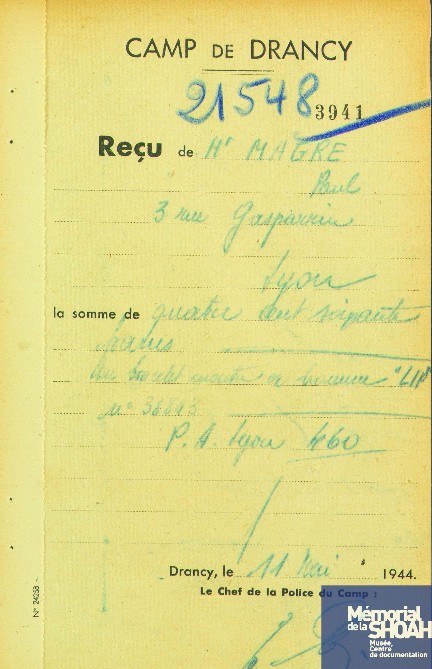 CAMP DE DRANCY
21548
3941
Reçu de Mr MAGRE
Paul
3 rue Gasparin
Lyon
la somme de quatre cent soixante
francs
Un bracelet montre "LIP"
n° 38843
P. A. Lyon 460
Drancy, le 11 Mai 1944.
Le Chef de la Police du Camp :
N° 24258
Mémorial
de la SHOAH
Musée,
Centre
de documentation